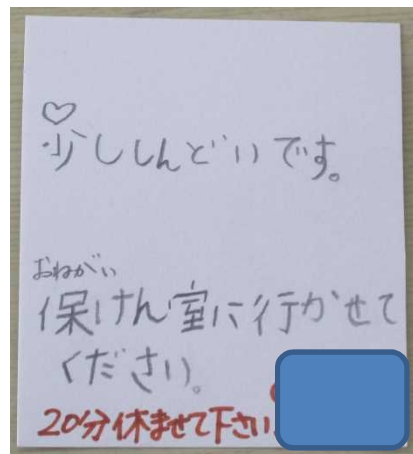 ♡
少ししんどいです。
おねがい
保けん室に行かせて
ください。
20分休ませて下さい